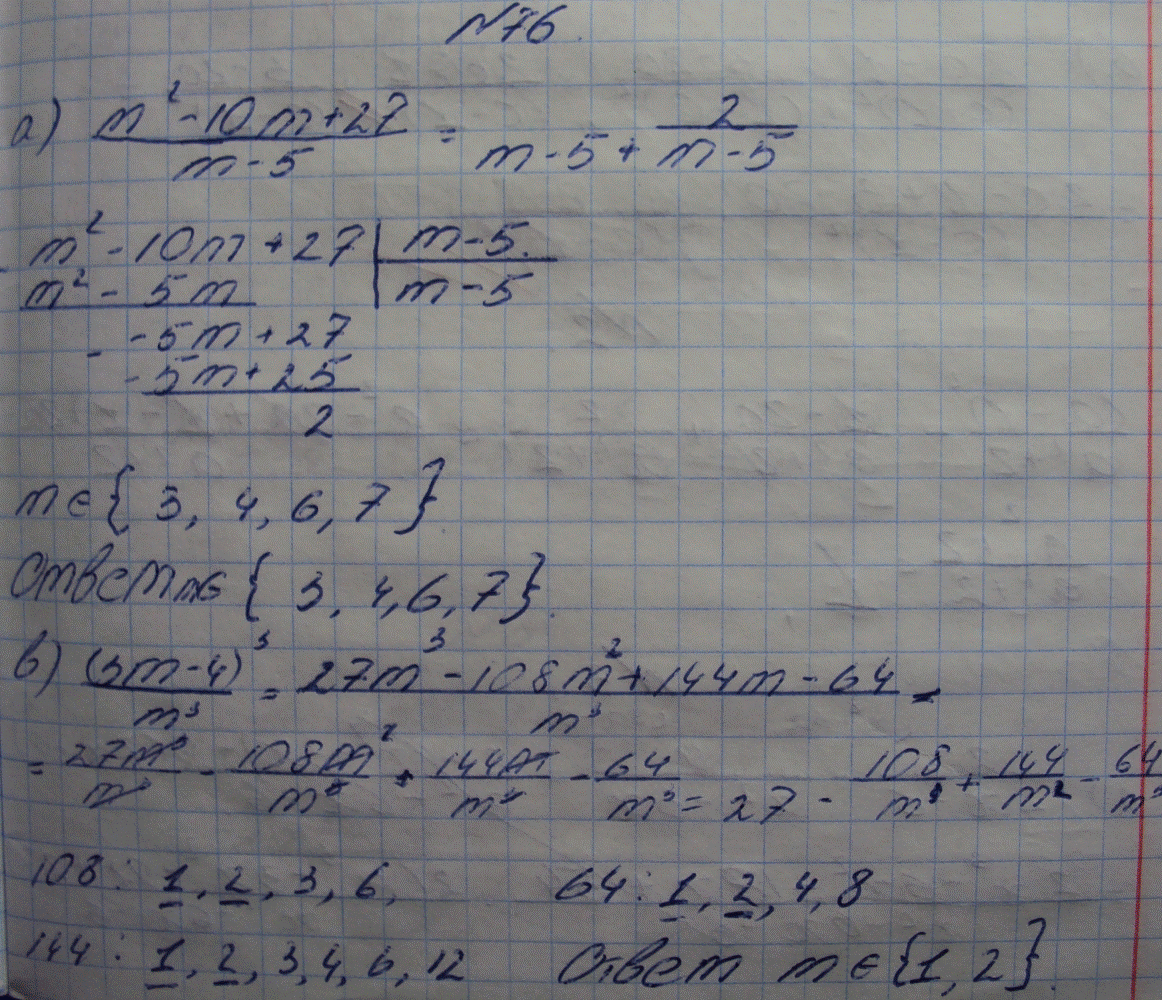 №76.
а) (m² - 10m + 27)/(m - 5) = m - 5 + 2/(m - 5)
m² - 10m + 27 | m - 5.
m² - 5m | m - 5
- -5m + 27
-5m + 25
2
m ∈ { 3, 4, 6, 7 }
Ответ m∈ { 3, 4, 6, 7 }.
в) (3m - 4)³/m³ = (27m³ - 108m² + 144m - 64)/m³ =
= 27m³/m³ - 108m²/m³ + 144m/m³ - 64/m³ = 27 - 108/m + 144/m² - 64/m³
108: 1, 2, 3, 6, 64: 1, 2, 4, 8
144: 1, 2, 3, 4, 6, 12 Ответ m ∈ {1, 2}.